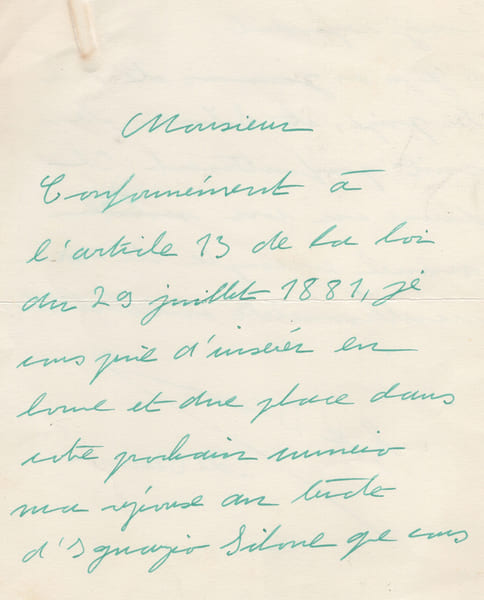 Monsieur
Conformément à
l'article 13 de la loi
du 29 juillet 1881, je
vous prie d'insérer en
bonne et due place dans
votre prochain numéro
ma réponse au texte
d'Ignazio Silone que vous